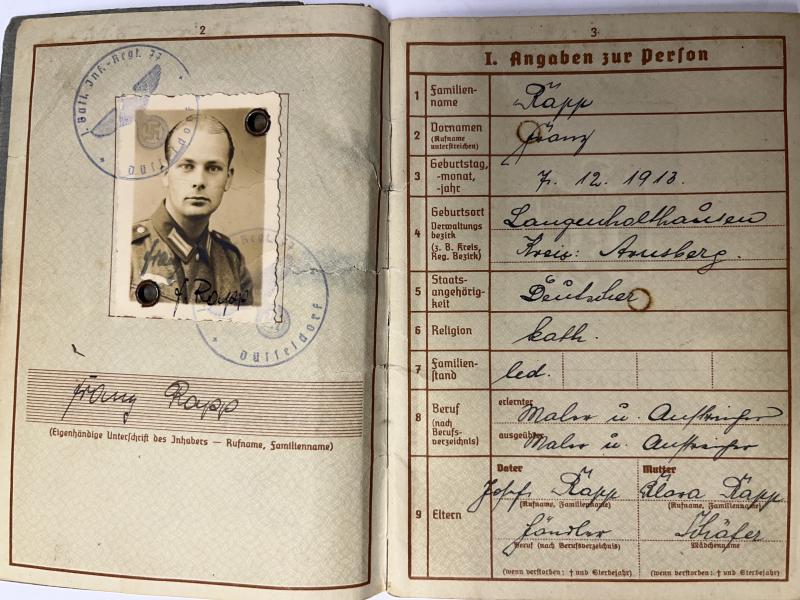 2
I. Batl. Inf.-Regt. 77
Düsseldorf
Franz Rapp
Düsseldorf
Franz Rapp
(Eigenhändige Unterschrift des Inhabers — Rufname, Familienname)
3
I. Angaben zur Person
1 Familien-name Rapp
2 Vornamen (Rufname unterstreichen) Franz
3 Geburtstag, -monat, -jahr 7. 12. 1913.
4 Geburtsort Verwaltungsbezirk (z. B. Kreis, Reg. Bezirk) Langenholthausen
Kreis: Arnsberg.
5 Staats-angehörig-keit Deutscher
6 Religion kath.
7 Familien-stand led.
8 Beruf (nach Berufs-verzeichnis) erlernter Maler u. Anstreicher
ausgeübter Maler u. Anstreicher
9 Eltern
Vater Mutter
Josef Rapp Klara Rapp
(Rufname, Familienname) (Rufname, Familienname)
Händler Schäfer
Beruf (nach Berufsverzeichnis) Mädchenname
(wenn verstorben: † und Sterbejahr) (wenn verstorben: † und Sterbejahr)